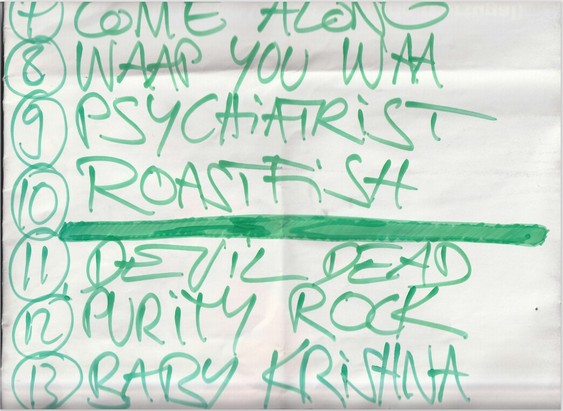 7 COME ALONG
8 WAAP YOU WAA
9 PSYCHiATRiST
10 ROASTFiSH
11 DEViL DEAD
12 PURiTY ROCK
13 BABY KRiSHNA